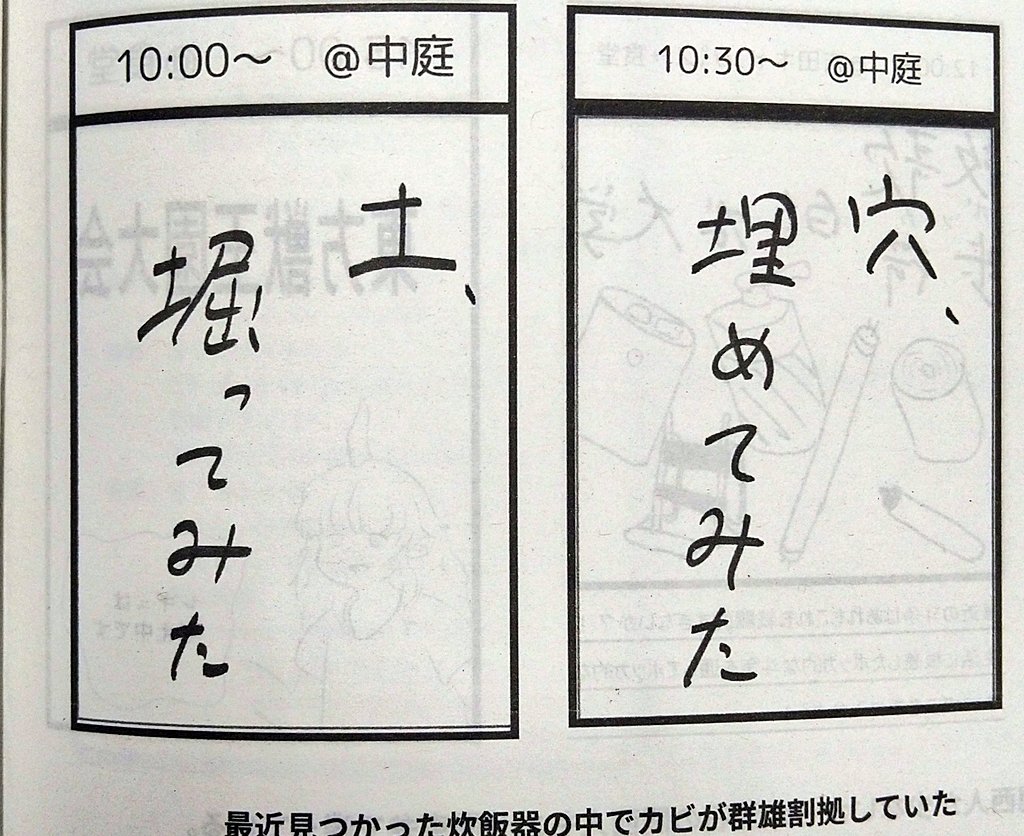 10:00～ @中庭
土、
堀ってみた
10:30～ @中庭
穴、
埋めてみた
最近見つかった炊飯器の中でカビが群雄割拠していた